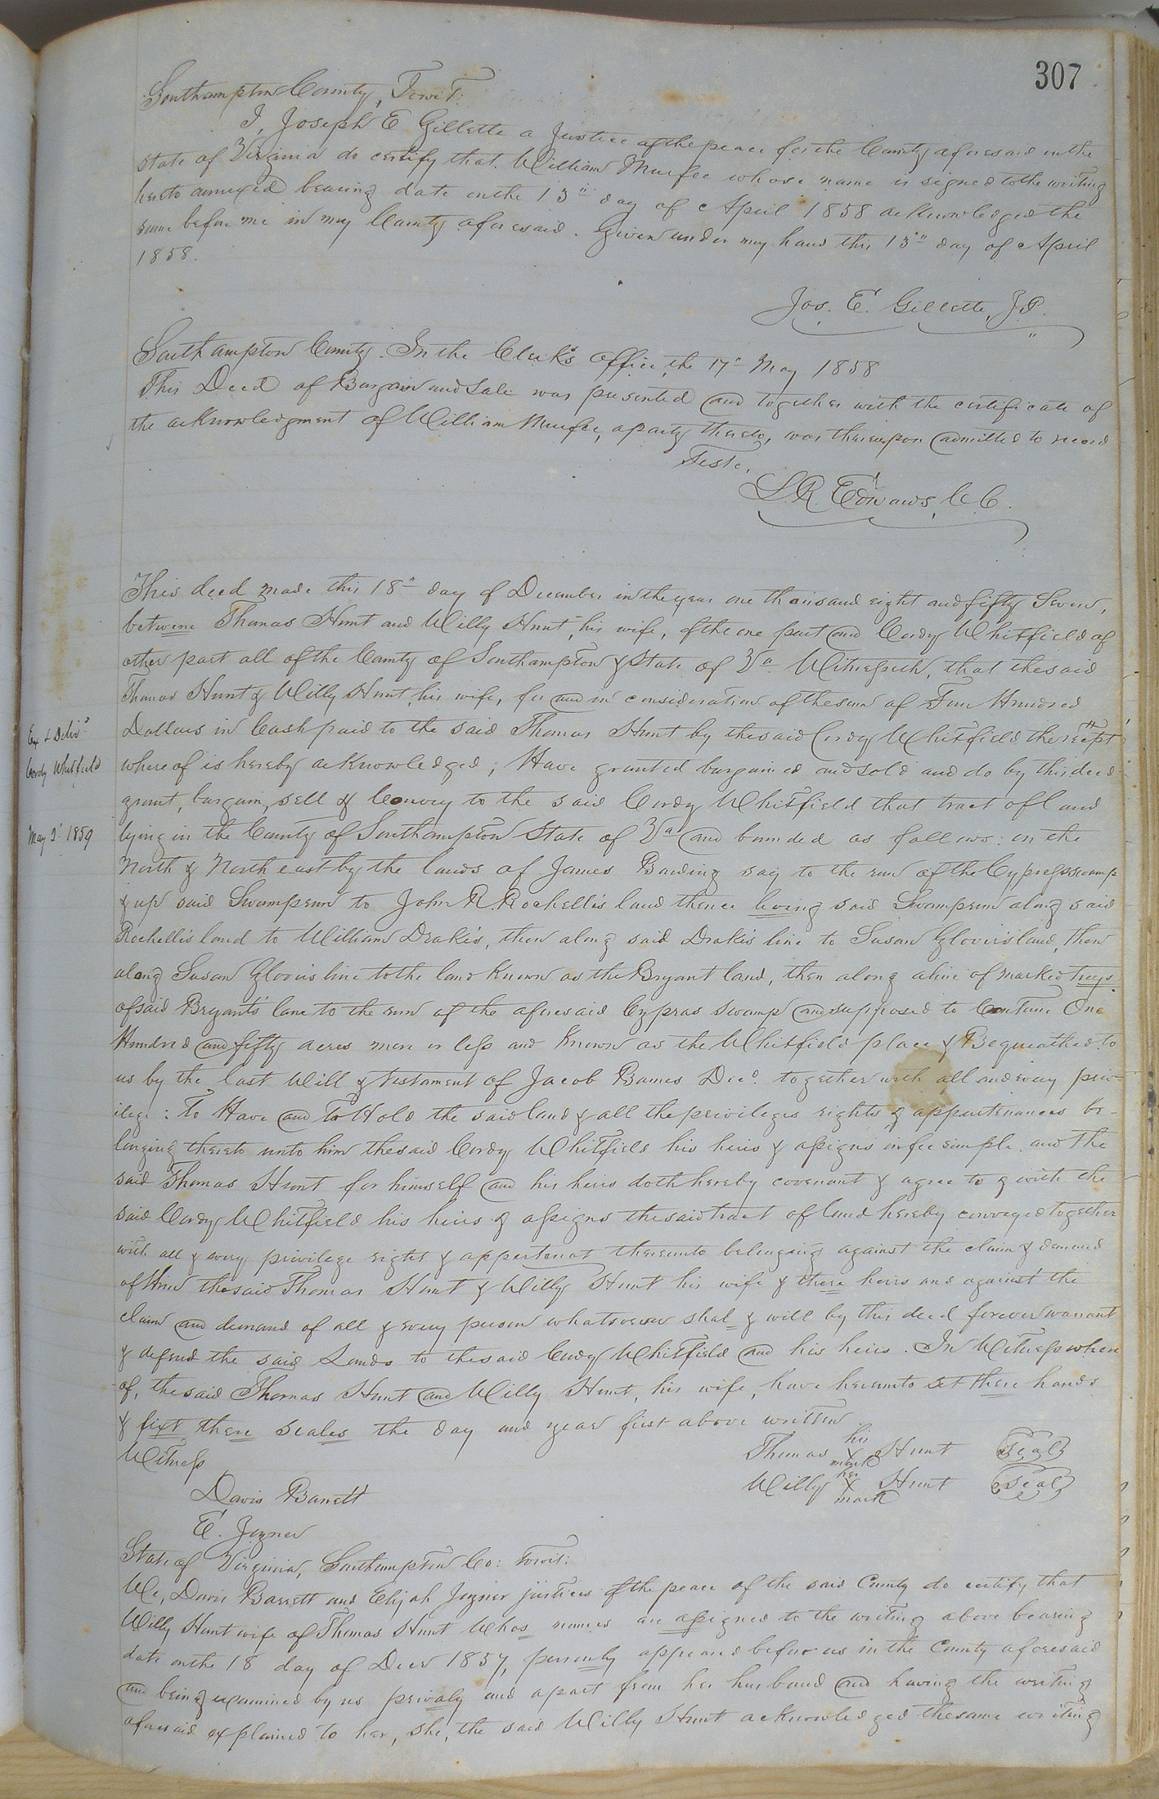 307
Southampton County, Towit:
I, Joseph E Gillette a Justice of the peace for the County aforesaid in the
state of Virginia do certify that William Murfee whose name is signed to the writing
hereto annexed bearing date on the 15th day of April 1858 acknowledged the
same before me in my County aforesaid. Given under my hand this 15th day of April
1858.
Jos. E. Gillette, J.P.
Southampton County. In the Clerk's office, the 17th May 1858
This Deed of Bargain and Sale was presented and together with the certificate of
the acknowledgment of William Murfee, a party thereto, was thereupon admitted to record
Teste,
L. R. Edwards, C. C.
This deed made this 18th day of December in the year one thousand eight and fifty Seven,
betwene Thomas Hunt and Willy Hunt, his wife, of the one part and Cordy Whitfield of
other part all of the County of Southampton & State of Va Witnesseth, that the said
Thomas Hunt & Willy Hunt, his wife, for and in consideration of the sum of Hundred
Dollars in Cash paid to the said Thomas Hunt by the said Cordy Whitfield the
Ex & Delivd
Cordy Whitfield
May 2d 1859
whereof is hereby acknowledged; Have granted bargained and sold and do by this deed
grant, bargain, sell & Convey to the said Cordy Whitfield that tract of land
lying in the County of Southampton State of Va and bounded as follows: on the
North & North east by the lands of James say to the run of the Cypress swamp
& up said Swamp run to John R. Rochelle's land thence said Swamp run along said
Rochelle's land to William Drake's, then along said Drake's line to Susan Glover's land, then
along Susan Glover's line to the land known as the Bryant land, then along a line of marked
of said Bryant's lane to the run of the aforesaid Cypras swamp and supposed to Contain One
Hundred and fifty acres more or less and Known as the Whitfield place & Bequeathed to
us by the last Will & testament of Jacob Barnes Decd. together with all and every priv-
ilege: To Have and To Hold the said land & all the privileges rights & appertenances be-
longing thereto unto him the said Cordy Whitfield his heirs & assigns in fee simple. and the
said Thomas Hunt for himself and his heirs doth hereby covenant & agree to & with the
said Cordy Whitfield his heirs & assigns the said tract of land hereby conveyed together
with all & every privilege right & appertenat thereunto belonging against the claim & demand
of them the said Thomas Hunt & Willy Hunt his wife & there heirs and against the
claim and demand of all & every person whatsoever shal & will by this deed forever warrant
& defend the said Lands to the said Cordy Whitfield and his heirs. In Witness where
of, the said Thomas Hunt and Willy Hunt, his wife, have hereunto set there hands
& fixt there seales the day and year first above written
Witness
Thomas his X mark Hunt (Seal)
Willy her X mark Hunt (Seal)
Davis Barrett
E. Joyner
State of Virginia, Southampton Co: towit:
We, Davis Barrett and Elijah Joyner justices of the peace of the said County do certify that
Willy Hunt wife of Thomas Hunt Whos names are assigned to the writing above bearing
date on the 18 day of Decr 1857, appeared before us in the County aforesaid
and being examined by us privaly and apart from her husband and having the writing
aforesaid explained to her, she, the said Willy Hunt acknowledged the same writing